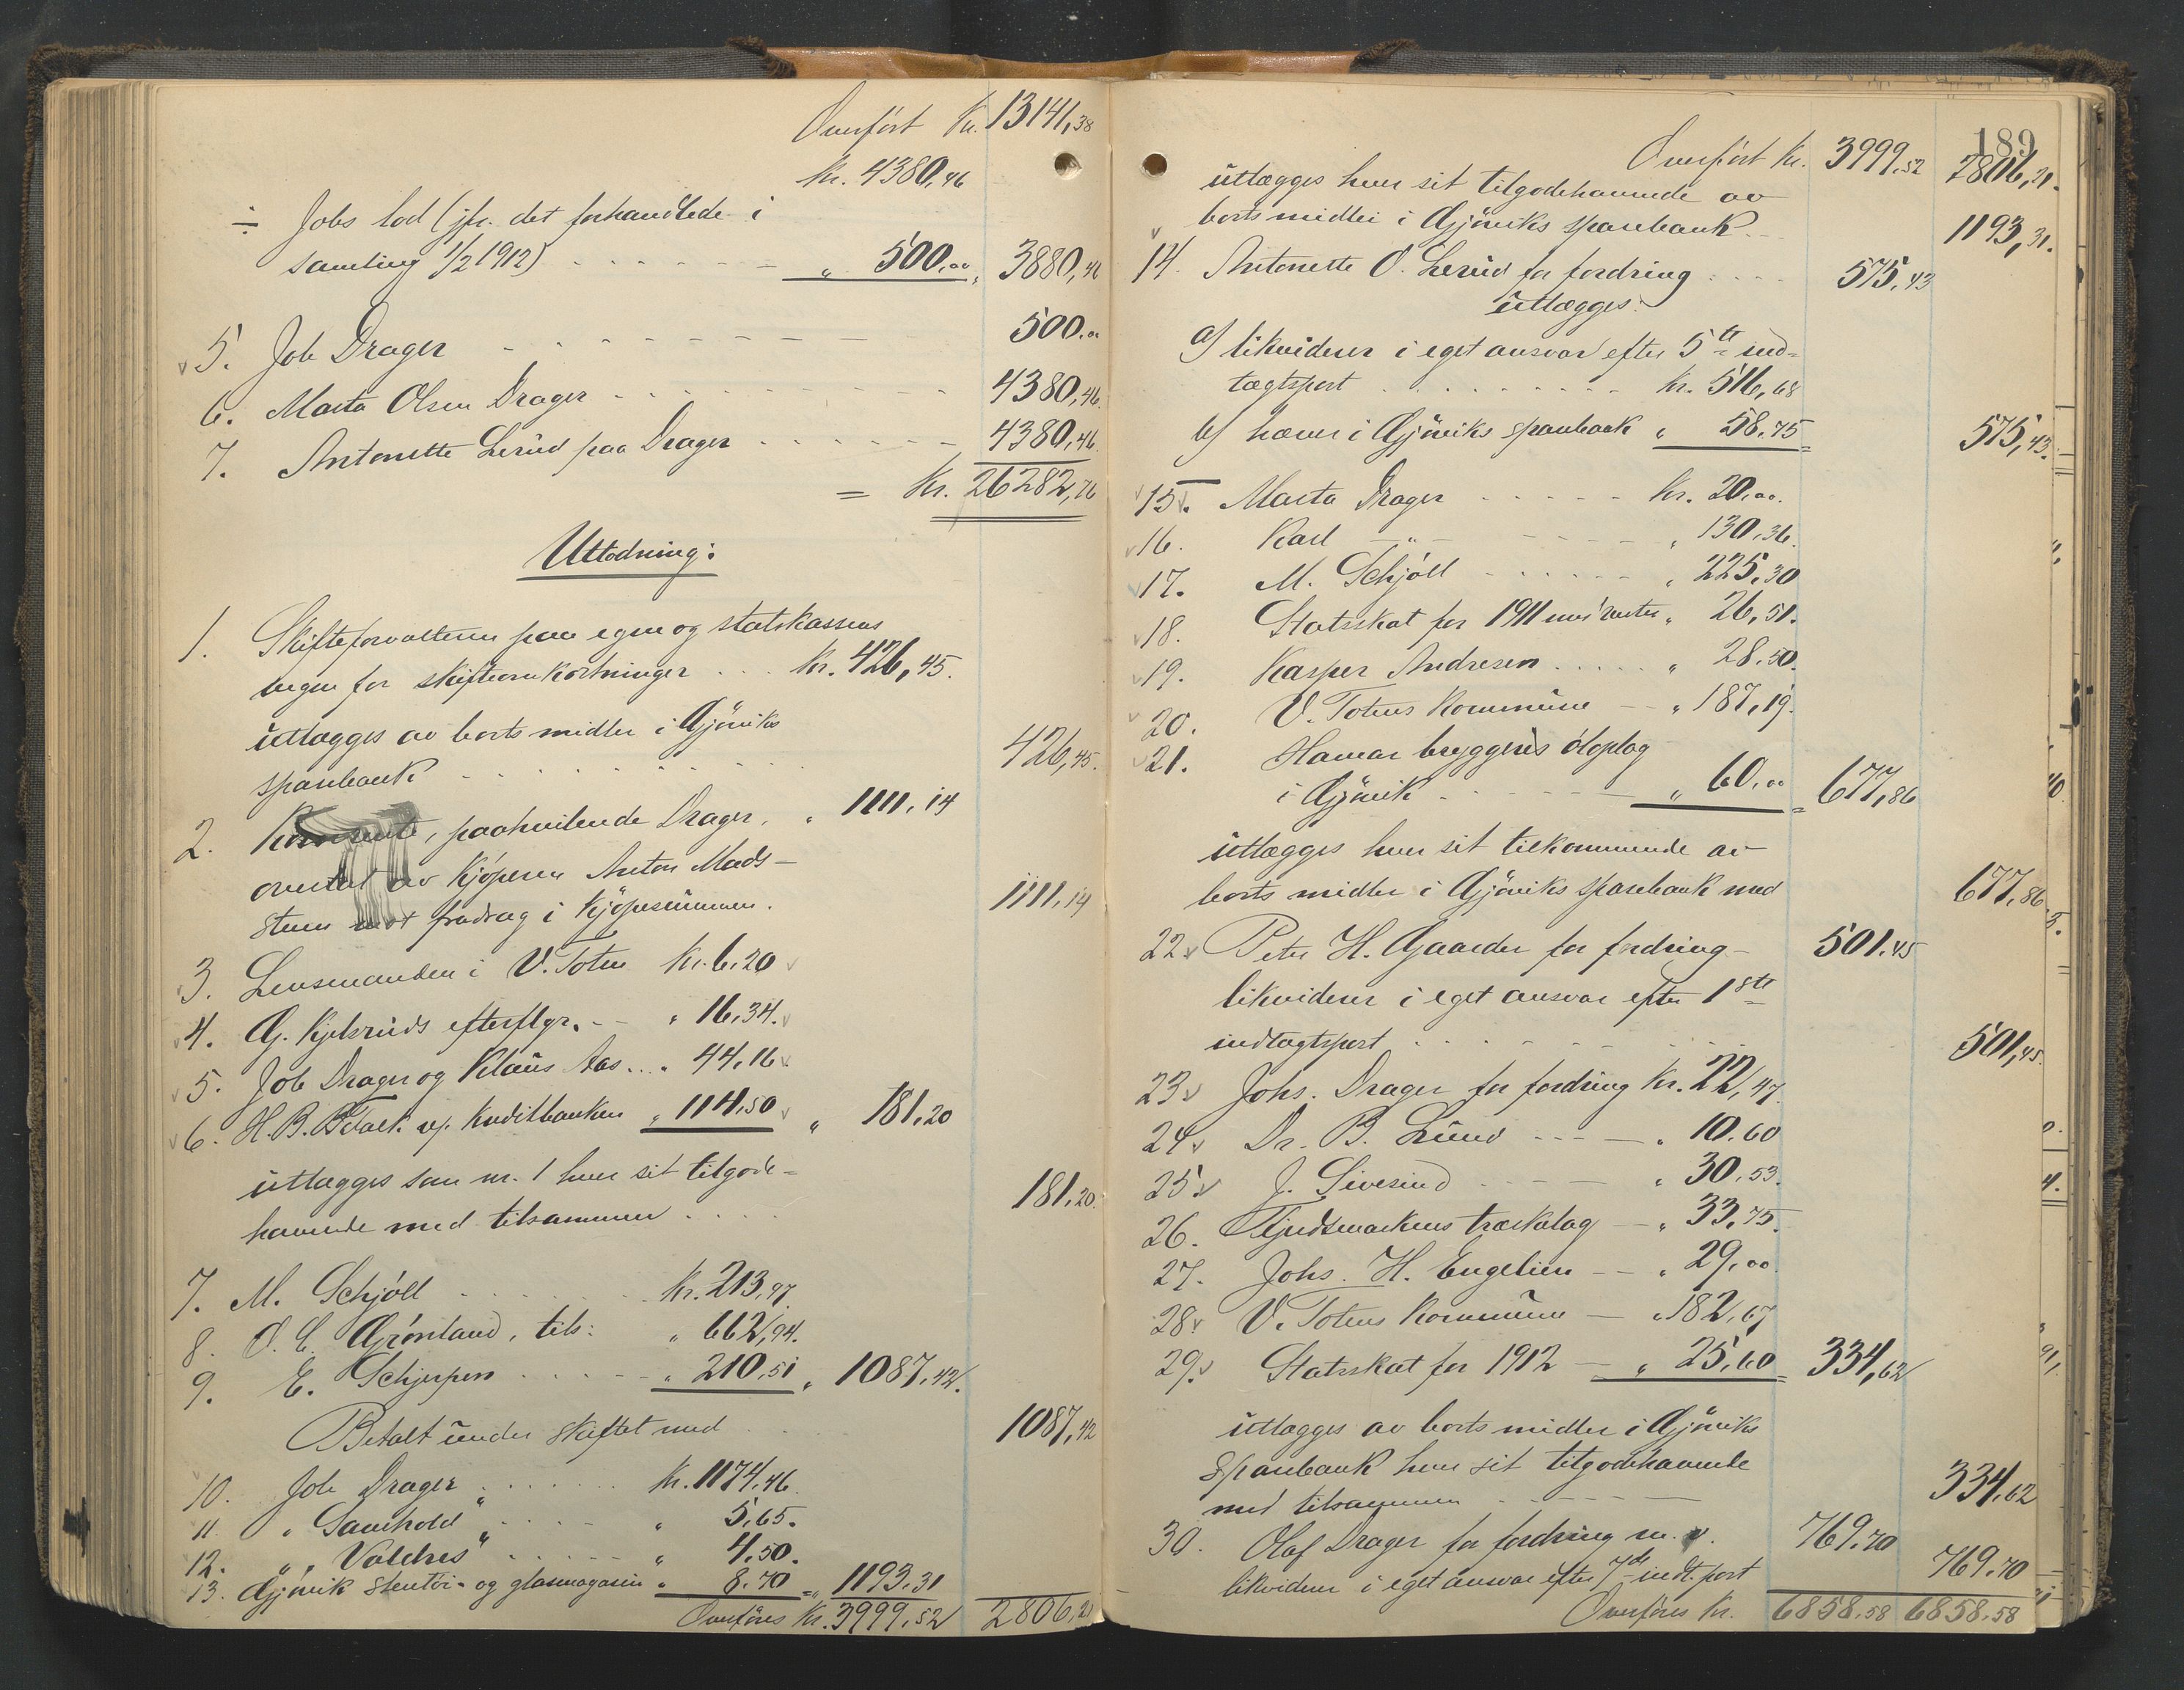 Overført Kr. 13141,38
Kr. 4380,46
÷ Jobs lod (jfr. det forhandlede i
samling 1/2 1912) " 500,00 " 3880,46
5. Job Drager 500,00
6. Marta Olsen Drager 4380,46
7. Antonette Lerud paa Drager 4380,46
= Kr. 26282,76
Utlodning:
1. Skifteforvalteren paa egne og statskassens
vegne for skifteomkostninger Kr. 426,45
utlægges av borts midler i Gjøviks
sparebank 426,45
2. paahvilende Drager, " 1111,14
overtat av kjøperen Anton Mads-
steen mot fradrag i kjøpesummen. 1111,14
3. Lensmanden i V. Toten Kr. 6,20
4. G. Kjelsruds efterflgr. " 16,34
5. Job Drager og Klaus Aas " 44,16
6. H. B. Falck v/ Kreditbanken " 114,50 " 181,20
utlægges som nr. 1 hver sit tilgode-
havende med tilsammen 181,20
7. M. Schjøll Kr. 213,97
8. O. E. Grønland, tils: " 662,94
9. E. Schjerpen " 210,51 " 1087,42
Betalt under skiftet med 1087,42
10. Job Drager Kr. 1174,46
11. "Samhold" " 5,65
12. " "Valdres" " 4,50
13. Gjøvik stentøi- og glasmagasin " 8,70 = " 1193,31
Overføres Kr. 3999,52 2806,21
189
Overført Kr. 3999,52 2806,21
utlægges hver sit tilgodehavende av
borts midler i Gjøviks sparebank 1193,31
14. Antonette O. Lerud for fordring 575,43
utlægges:
a) likviderer i eget ansvar efter 5te ind-
tægtspost Kr. 516,68
b) hæver i Gjøviks sparebank " 58,75 575,43
15. Marta Drager Kr. 20,00
16. Karl —"— " 130,36
17. M. Schjøll " 225,30
18. Statsskat for 1911 med renter " 26,51
19. Kasper Andresen " 28,50
20. V. Totens kommune " 187,19
21. Hamar bryggeris øloplag
i Gjøvik " 60,00 = 677,86
utlægges hver sit tilkommende av
borts midler i Gjøviks sparebank med 677,86
22. Peter H. Gaarder for fordring 501,45
likviderer i eget ansvar efter 1ste
indtægtspost 501,45
23. Johs. Drager for fordring Kr. 22,47
24. Dr. B. Lund " 10,60
25. J. Sivesind " 30,53
26. trælastlag " 33,75
27. Johs. H. Engelien " 29,00
28. V. Totens kommune " 182,67
29. Statsskat for 1912 " 25,60 = 334,62
utlægges av borts midler i Gjøviks
sparebank hver sit tilgodehavende
med tilsammen 334,62
30. Olaf Drager for fordring m. v. 769,70
likviderer i eget ansvar efter 7de indt. post 769,70
Overføres Kr. 6858,58 6858,58